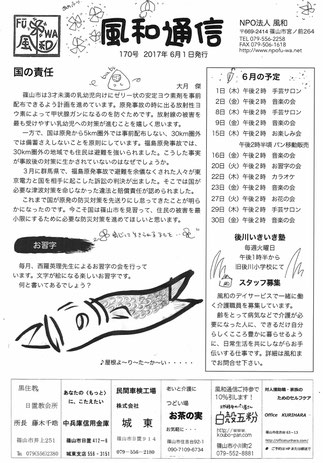 FŪ WA
風和
風和通信
170号 2017年6月1日発行
NPO法人 風和
〒669-2414 篠山市宮ノ前264
TEL 079-556-2258
FAX 079-506-1618
http://www.npofu-wa.net
国の責任
大月 傑
篠山市は3才未満の乳幼児向けにゼリー状の安定ヨウ素剤を事前
配布できるよう計画を進めています。原発事故の時に出る放射性ヨ
ウ素によって甲状腺ガンになるのを防ぐためです。放射線の被害を
最も受けやすい乳幼児への対策が進むことを嬉しく思います。
一方で、国は原発から5km圏外では事前配布しない、30km圏外
では備蓄さえしないことを原則にしています。福島原発事故では、
30km圏外の地域でも住民は避難を強いられました。こうした事実
が事故後の対策に生かされていないのはなぜでしょうか。
3月に群馬県で、福島原発事故で避難を余儀なくされた人々が東
京電力と国を相手に起こした訴訟の判決が出ました。そこでは国が
必要な津波対策を命じなかった違法と賠償責任が認められました。
これまで国が原発の防災対策を先送りにし怠ってきたことが明ら
かになったのです。今こそ国は篠山市を見習って、住民の被害を最
小限にするために必要な防災対策を進めてほしいと思います。
お習字
毎月、西羅英理先生によるお習字の会を行って
います。文字が絵になる楽しいお習字です。
何と書いてあるでしょう?
♪屋根よ～り～た～か～い・・・・・
6月の予定
1日(木)午後2時 手芸サロン
2日(金)午後2時 音楽の会
8日(木)午後2時 手芸サロン
9日(金)午後2時 音楽の会
15日(木)午後2時 お楽しみ会
午後2時半頃 パン移動販売
16日(金)午後2時 音楽の会
20日(火)午後2時 お習字の会
22日(木)午後2時 カラオケ
23日(金)午後2時 音楽の会
27日(火)午後2時 お花の会
29日(木)午後2時 手芸サロン
30日(金)午後2時 音楽の会
後川いきいき塾
毎週火曜日
午後1時半から
旧後川小学校にて
スタッフ募集
風和のデイサービスで一緒に働
く介護職員を募集しています。
齢をとって病気などで介護が必
要になった人に、できるだけ自分
らしくここら豊かに暮らせるよう
に、日常生活を共にしながらお手
伝いする仕事です。詳細は風和ま
でお問合せ下さい。
黒住教
日置教会所
所長 藤木千皓
篠山市井上251
電話 079(556)2380
あなたの「もっと」
に、こたえたい
中兵庫信用金庫
篠山市日置417-8
城東支店 556-2151
民間車検工場
株式会社
城東
篠山市日置914
079-556-2180
老いと介護に
つどい場
お茶の実
篠山市住吉台92-1
090-7109-6734
風和通信ご持参で
10%引します!
白殻五粉
koubo-pan.com
篠山市小田中2
079-552-8881
対人援助職・家族の
ためのセルフケア
Office KURIHARA